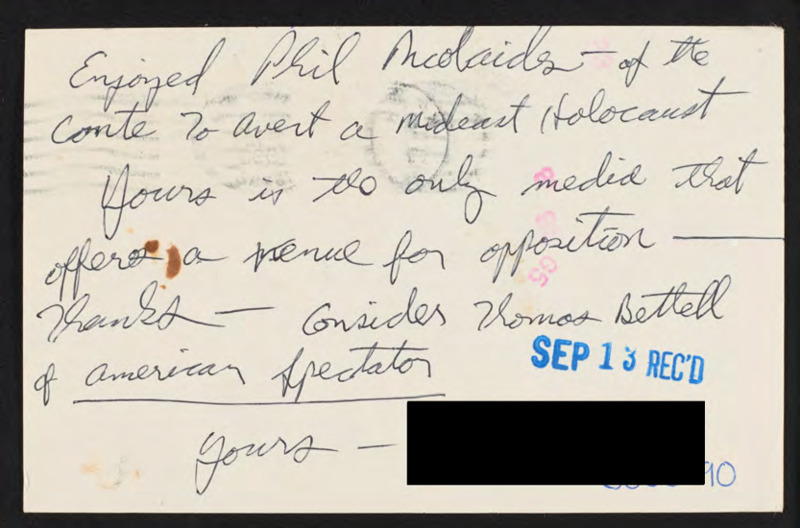 Enjoyed Phil Nicolaides - of the
Comte to avert a mideast Holocaust
Yours is the only media that
offers a venue for opposition —
Thanks — Consider Thomas Bethell
of American Spectator
SEP 13 REC'D
yours —
90